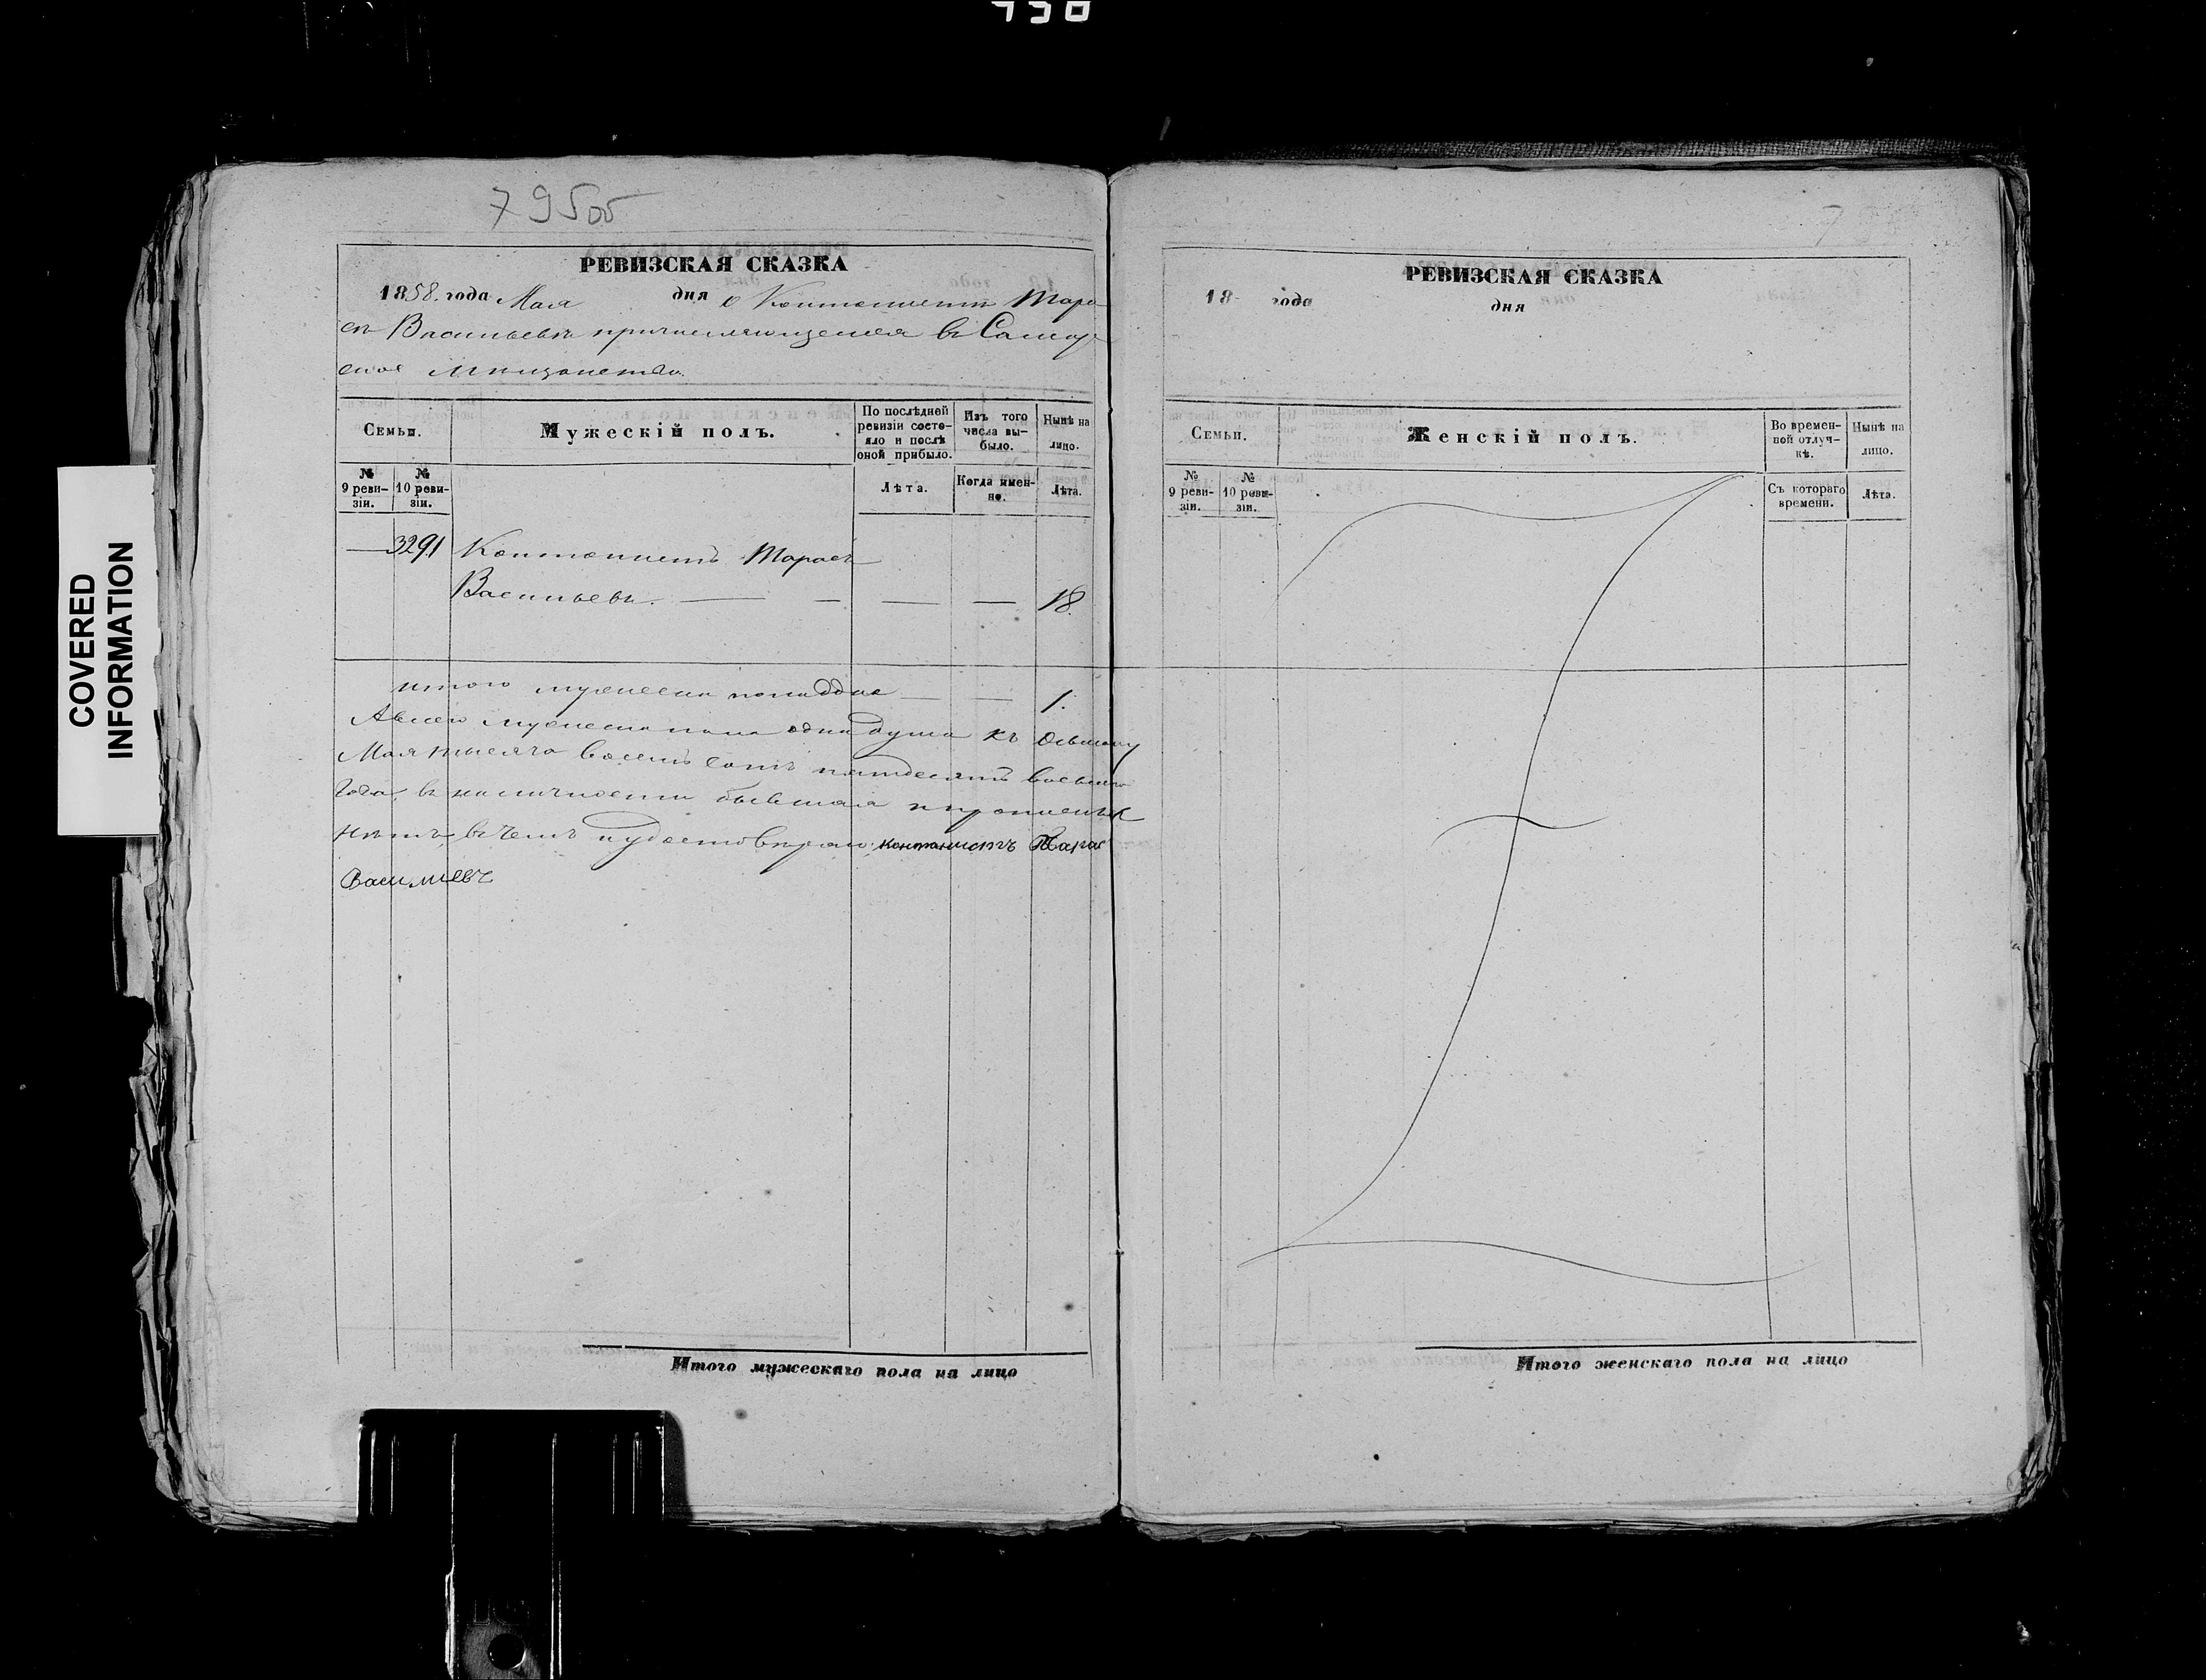 795об
РЕВИЗСКАЯ СКАЗКА
1858 года Мая дня о Кантонистѣ Тара
сѣ Васильевѣ причисляющемся въ Самар
ское мѣщанство.
Семьи.
Мужескій полъ.
По послѣдней ревизіи состояло и послѣ оной прибыло.
Изъ того числа выбыло.
Нынѣ на лицо.
№ 9 ревизіи.
№ 10 ревизіи.
Лѣта.
Когда именно.
Лѣта.
3291 Кантонистъ Тарасъ
Васильевъ. 18.
Итого мужеска пола душа 1.
А всего мужеска пола одна душа къ осьмому
Мая тысяча восемь сотъ пятдесятъ восьмаго
года, въ наличности бывшая и прописныхъ
нѣтъ, въ чемъ и удостовѣряю: кантанистъ Тарас
Василиевъ
Итого мужескаго пола на лицо
РЕВИЗСКАЯ СКАЗКА
18 года
дня
Семьи.
Женскій полъ.
Во временной отлучкѣ.
Нынѣ на лицо.
№ 9 ревизіи.
№ 10 ревизіи.
Съ котораго времени.
Лѣта.
Итого женскаго пола на лицо
COVERED
INFORMATION